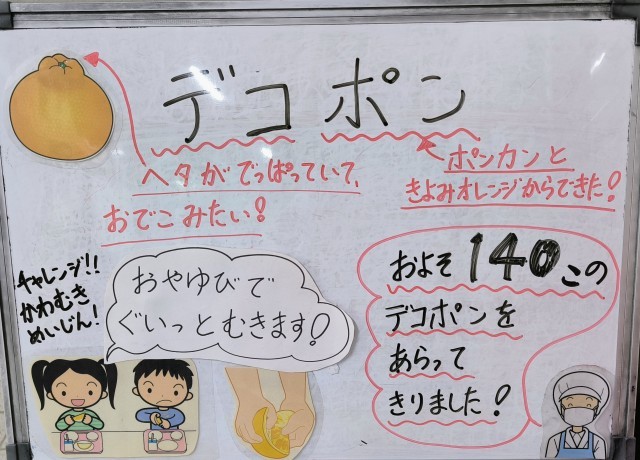 デコポン
ヘタがでっぱっていて、
おでこみたい!
ポンカンと
きよみオレンジからできた!
チャレンジ!!
かわむき
めいじん!
おやゆびで
ぐいっとむきます!
およそ140この
デコポンを
あらって
きりました!